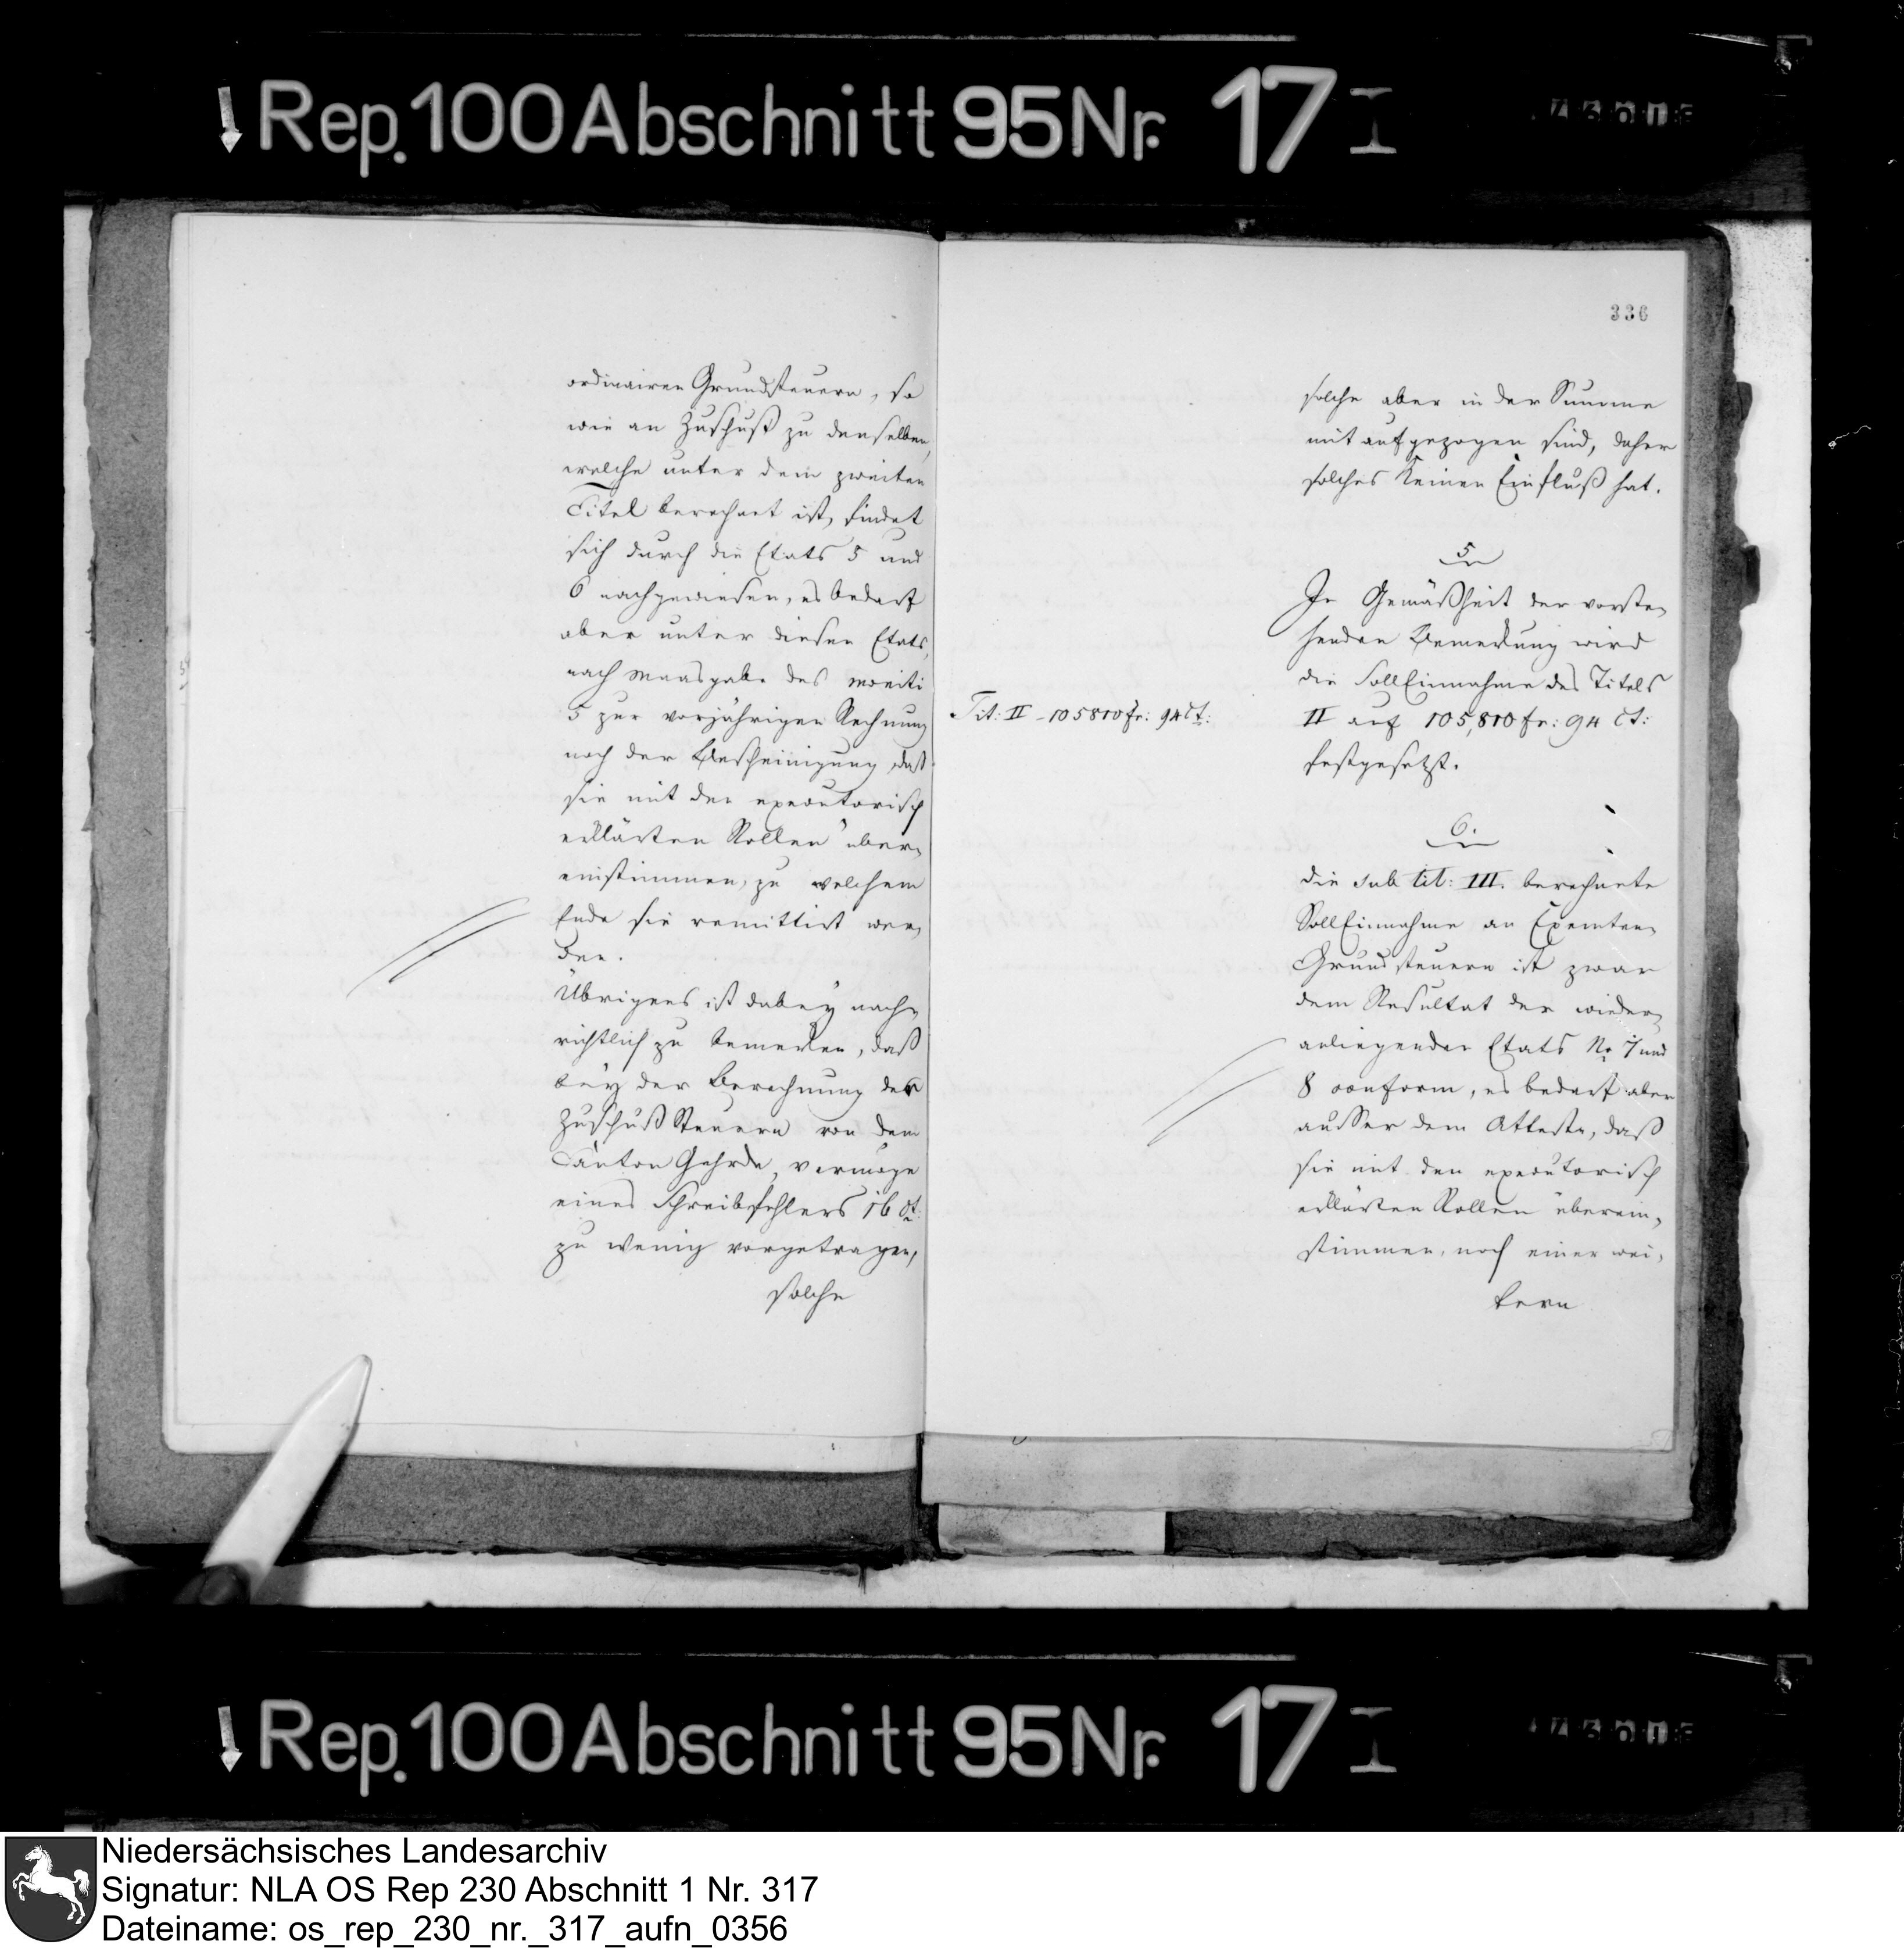 Rep. 100 Abschnitt 95 Nr. 17 I
ordinairen Grundsteuern, so
wie an Zuschuß zu denselben,
welche unter dem zweiten
Titel berechnet ist, findet
sich durch die Etats 5 und
6 nachgewiesen, es bedarf
aber unter diesen Etats,
nach Maasgabe des moniti
5 zur vorjährigen Rechnung
noch der Bescheinigung, daß
sie mit den executorisch
erklärten Rollen über-
einstimmen, zu welchem
Ende sie remittirt wer-
den.
Übrigens ist dabey nach-
richtlich zu bemerken, daß
bey der Berechnung der
Zuschuß Steuern von dem
Canton Gehrde, vermöge
eines Schreibfehlers 16 ct:
zu wenig vorgetragen,
solche
336
solche aber in der Summe
mit aufgezogen sind, daher
solches keinen Einfluß hat.
5
In Gemäßheit der vorste-
henden Bemerkung wird
die SollEinnahme des Titels
Tit: II - 105810 fr: 94 ct:
II auf 105,810 fr: 94 ct:
festgesetzt.
6.
Die sub tit: III. berechnete
SollEinnahme an Exemten-
Grundsteuern ist zwar
dem Resultat der wieder-
anliegenden Etats No 7 und
8 conform, es bedarf aber
ausser dem Atteste, daß
sie mit den executorisch
erklärten Rollen überein-
stimmen, noch einer wei-
tern
Rep. 100 Abschnitt 95 Nr. 17 I
Niedersächsisches Landesarchiv
Signatur: NLA OS Rep 230 Abschnitt 1 Nr. 317
Dateiname: os_rep_230_nr._317_aufn_0356